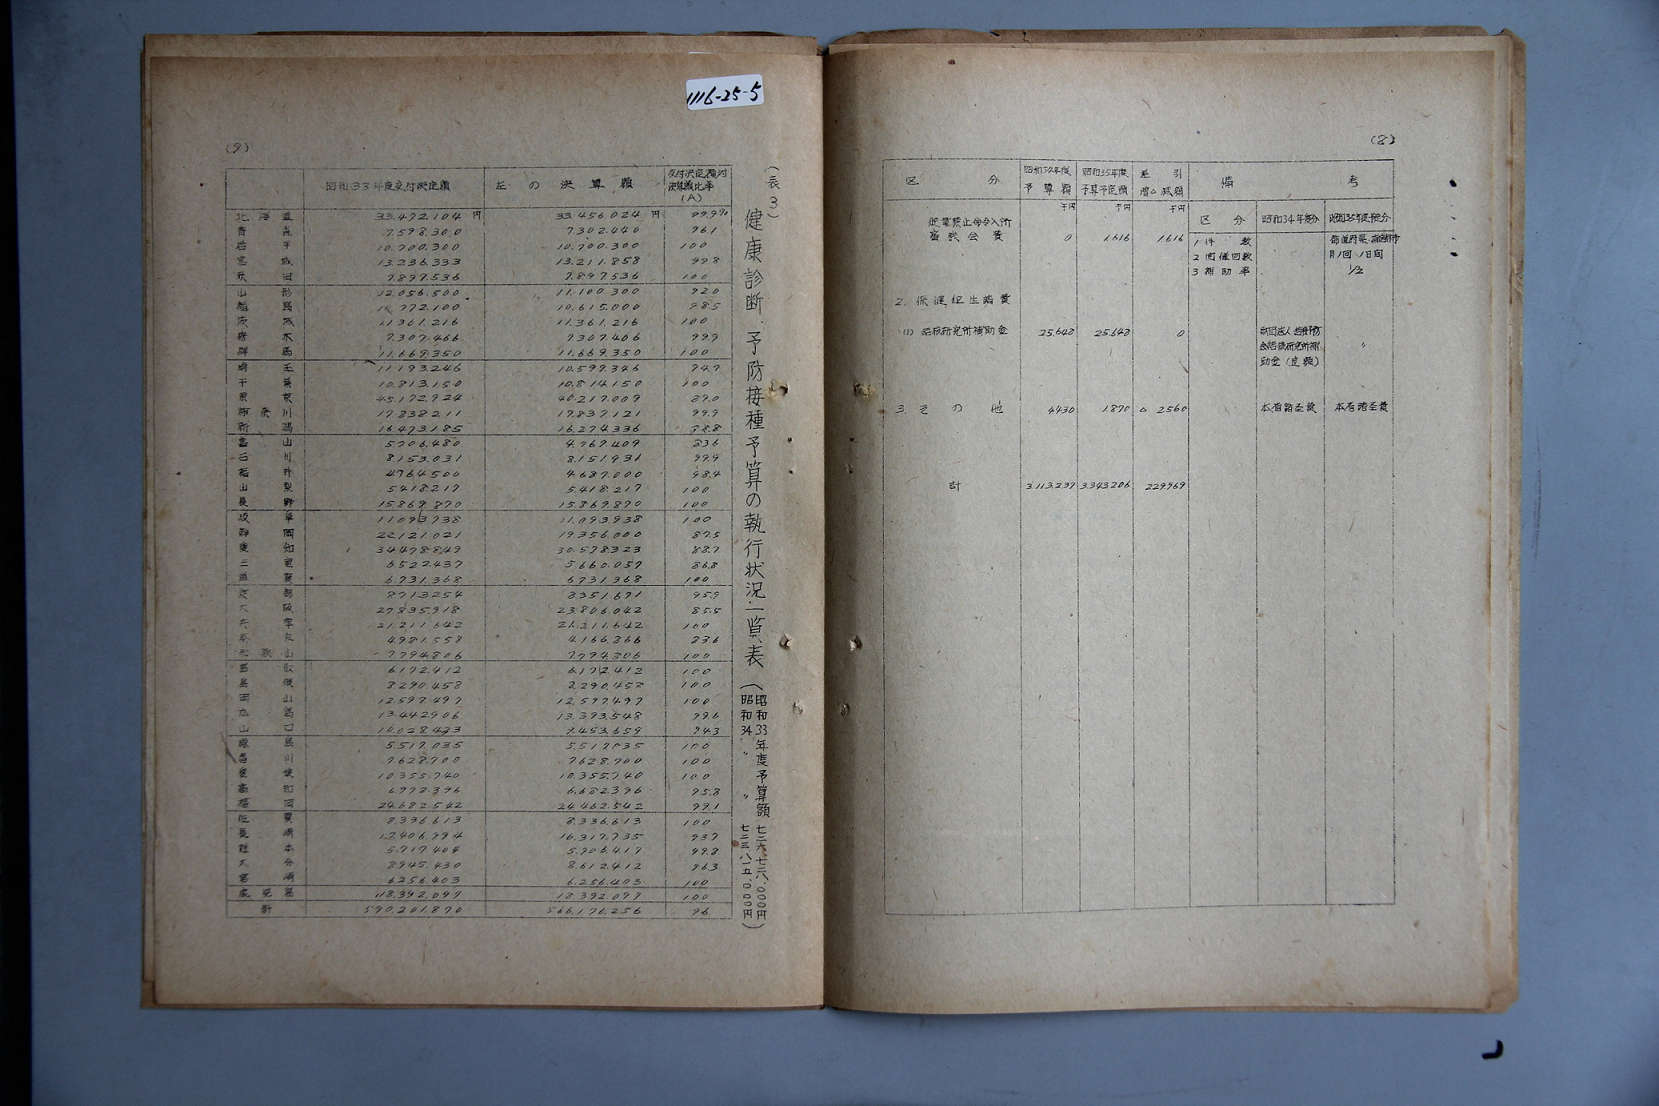 1116-25-5
(8)
区 分 昭和34年度予算額 昭和35年度予算予定額 差引増△減額 備 考
千円 千円 千円
区 分 昭和34年度分 昭和35年度分
従業禁止命令入所
審議会費 0 1,616 1,616
1 件 数
2 開催回数 月1回 1日間
3 補助率 1/2
2. 保健衛生諸費
(1) 結核研究所補助金 25,643 25,643 0 財団法人結核予防会結核研究所補助金(定額) 〃
3. その他 4430 1870 △ 2560 本省諸経費 本省諸経費
計 3,113,237 3,343,206 229,969
(9)
(表3)
健康診断、予防接種予算の執行状況一覧表
(昭和33年度予算額 七二六、七二八、〇〇〇円
昭和34 〃 〃 七三三、八一五、〇〇〇円)
昭和33年度交付決定額 左の決算額 交付決定額対決算額比率(A)
北海道 33,492,104円 33,456,024円 99.9%
青森 7,598,300 7,302,040 96.1
岩手 10,700,300 10,700,300 100
宮城 13,236,333 13,211,858 99.8
秋田 7,897,536 7,897,536 100
山形 12,056,500 11,100,300 92.0
福島 10,615,000 98.5
茨城 11,361,216 11,361,216 100
栃木
群馬 11,669,350 11,669,350 100
埼玉 11,193,246
千葉 100
東京 45,172,924 40,217,009 89.0
神奈川 17,838,211 17,837,121 99.9
新潟 16,473,185 16,274,336 98.8
富山 5,706,480 4,769,409 83.6
石川 8,153,031 8,151,931 99.9
福井 4,764,500 4,687,000 98.4
山梨 5,418,217 5,418,217 100
長野 15,869,870 15,869,870 100
岐阜 100
静岡 22,121,021 19,356,000 87.5
愛知 34,478,849 30,578,323 88.7
三重 6,522,437 5,660,057 86.8
滋賀 6,731,368 6,731,368 100
京都 8,713,254 8,351,691 95.9
大阪 27,835,918 23,806,042 85.5
兵庫 21,211,642 21,211,642 100
奈良 4,981,558 4,166,366 83.6
和歌山 7,794,806 7,794,806 100
鳥取 6,172,412 6,172,412 100
島根 8,290,458 8,290,458 100
岡山 12,597,497 12,597,497 100
広島 13,442,906 13,393,548 99.6
山口 10,028,493 9,453,659 94.3
徳島 5,517,035 5,517,035 100
香川 7,628,700 7,628,700 100
愛媛 10,355,740 10,355,740 100
高知 6,972,396 6,682,396 95.8
福岡 24,682,542 24,462,542 99.1
佐賀 8,336,613 8,336,613 100
長崎 17,406,994 16,317,735 93.7
熊本 5,917,404 5,906,417 99.8
大分 8,945,430 8,612,412 96.3
宮崎 6,256,403 6,256,403 100
鹿児島 18,392,097 18,392,097 100
計 590,201,870 566,176,256 96